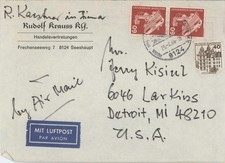 R. Kerschner in Firma
Rudolf Krauss Kg.
Handelsvertretungen
Frechenseeweg 7 8124 Seeshaupt
60
60
8124
40
Mr.
Jerry Kisicel
6046 Larkins
Detroit, Mi 48210
U.S.A.
by Air Mail
MIT LUFTPOST
PAR AVION